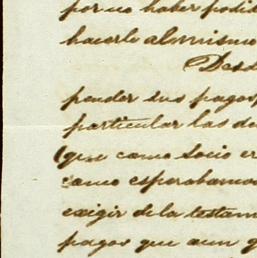 por no haber podi
hacerlo al mismo
Desd
pender sus pagos,
particular las de
que como socio er
como esperabamos
exigir de la testam
pagos que aun q